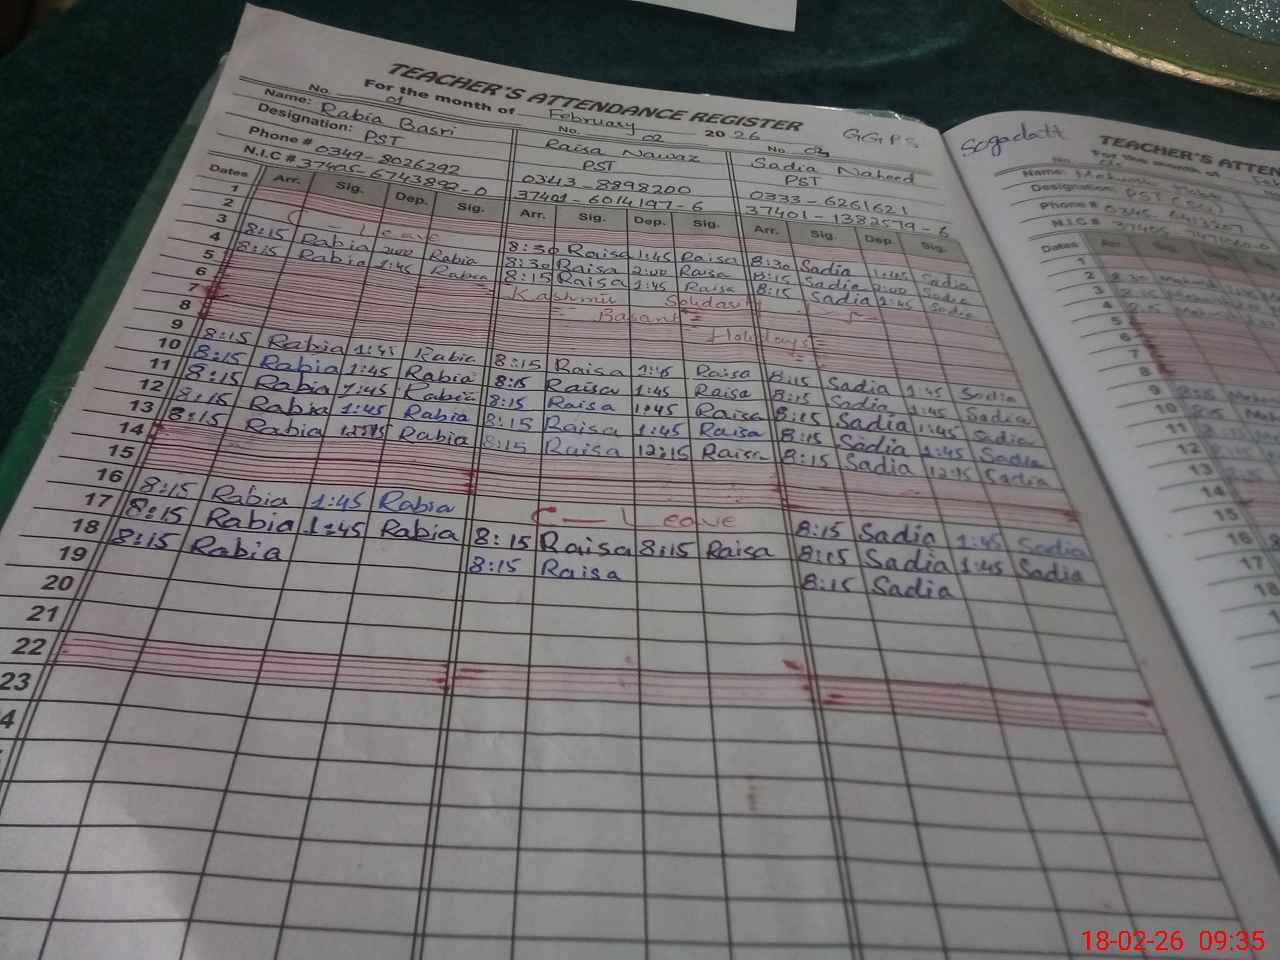 TEACHER'S ATTENDANCE REGISTER
For the month of February 2026 GGPS Sogadatt
No. 01 No. 02 No. 03
Name: Rabia Basri Raisa Nawaz Sadia Naheed
Designation: PST PST PST
Phone # 0349-8026292 0343-8898200 0333-6261621
N.I.C # 37405-6743892-0 37401-6014197-6 37401-1382579-6
Dates Arr. Sig. Dep. Sig. Arr. Sig. Dep. Sig. Arr. Sig. Dep. Sig.
1
2 C - Leave 8:30 Raisa 1:45 Raisa 8:30 Sadia 1:45 Sadia
3 8:15 Rabia 2:00 Rabia 8:30 Raisa 2:00 Raisa 8:15 Sadia 2:00 Sadia
4 8:15 Rabia 1:45 Rabia 8:15 Raisa 1:45 Raisa 8:15 Sadia 1:45 Sadia
5 Kashmir Solidarity
6 Basant
7 Holidays
8
9 8:15 Rabia 1:45 Rabia 8:15 Raisa 1:45 Raisa 8:15 Sadia 1:45 Sadia
10 8:15 Rabia 1:45 Rabia 8:15 Raisa 1:45 Raisa 8:15 Sadia 1:45 Sadia
11 8:15 Rabia 1:45 Rabia 8:15 Raisa 1:45 Raisa 8:15 Sadia 1:45 Sadia
12 8:15 Rabia 1:45 Rabia 8:15 Raisa 1:45 Raisa 8:15 Sadia 1:45 Sadia
13 8:15 Rabia Rabia 8:15 Raisa 12:15 Raisa 8:15 Sadia 12:15 Sadia
14
15
16 8:15 Rabia 1:45 Rabia C - Leave 8:15 Sadia 1:45 Sadia
17 8:15 Rabia 1:45 Rabia 8:15 Raisa 8:15 Raisa 8:15 Sadia 1:45 Sadia
18 8:15 Rabia 8:15 Raisa 8:15 Sadia
19
20
21
22
23
4
TEACHER'S ATTEN
Name:
Designation: PST
Phone #
N.I.C #
Dates Arr.
1
2
3
4
5
6
7
8
9
10
11
12
13
14
15
16
17
18
18-02-26 09:35